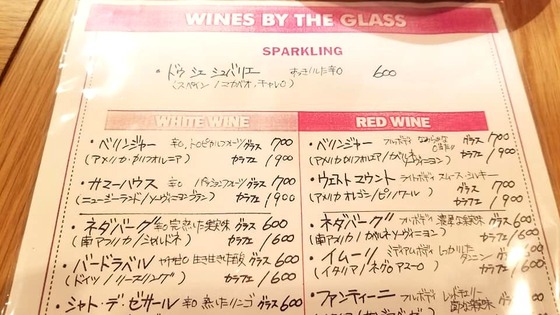 WINES BY THE GLASS
SPARKLING
・ドゥ シェ シュバリエ すっきりした辛口 600
(スペイン/マカベオ,チャレロ)
WHITE WINE
・ベリンジャー 辛口、トロピカルフルーツ グラス 700
(アメリカ・カリフォルニア) カラフェ 1900
・サマーハウス 辛口 パッションフルーツ グラス 700
(ニュージーランド/ソーヴィニヨンブラン) カラフェ 1900
・ネダバーグ 辛口 完熟した果実味 グラス 600
(南アフリカ/シャルドネ) カラフェ 1600
・バードラベル やや甘口 生き生きした酸 グラス 600
(ドイツ/リースリング) カラフェ 1600
・シャト・デ・ゼサール 辛口 熟したリンゴ グラス 600
RED WINE
・ベリンジャー フルボディ なめらかな口あたり グラス 700
カラフェ 1900
・ウエストマウント ライトボディ スムース・シルキー
(アメリカ オレゴン/ピノノワール) グラス 700
カラフェ 1900
・ネダバーグ フルボディ 濃厚な果実味 グラス 600
(南アメリカ/カベルネソーヴィニヨン) カラフェ 1600
・イムーリ ミディアムボディ しっかりしたタンニン グラス 600
(イタリア/ネグロアマーロ) カラフェ 1600
・ファンティーニ フルボディ レッドチェリー グラス 600